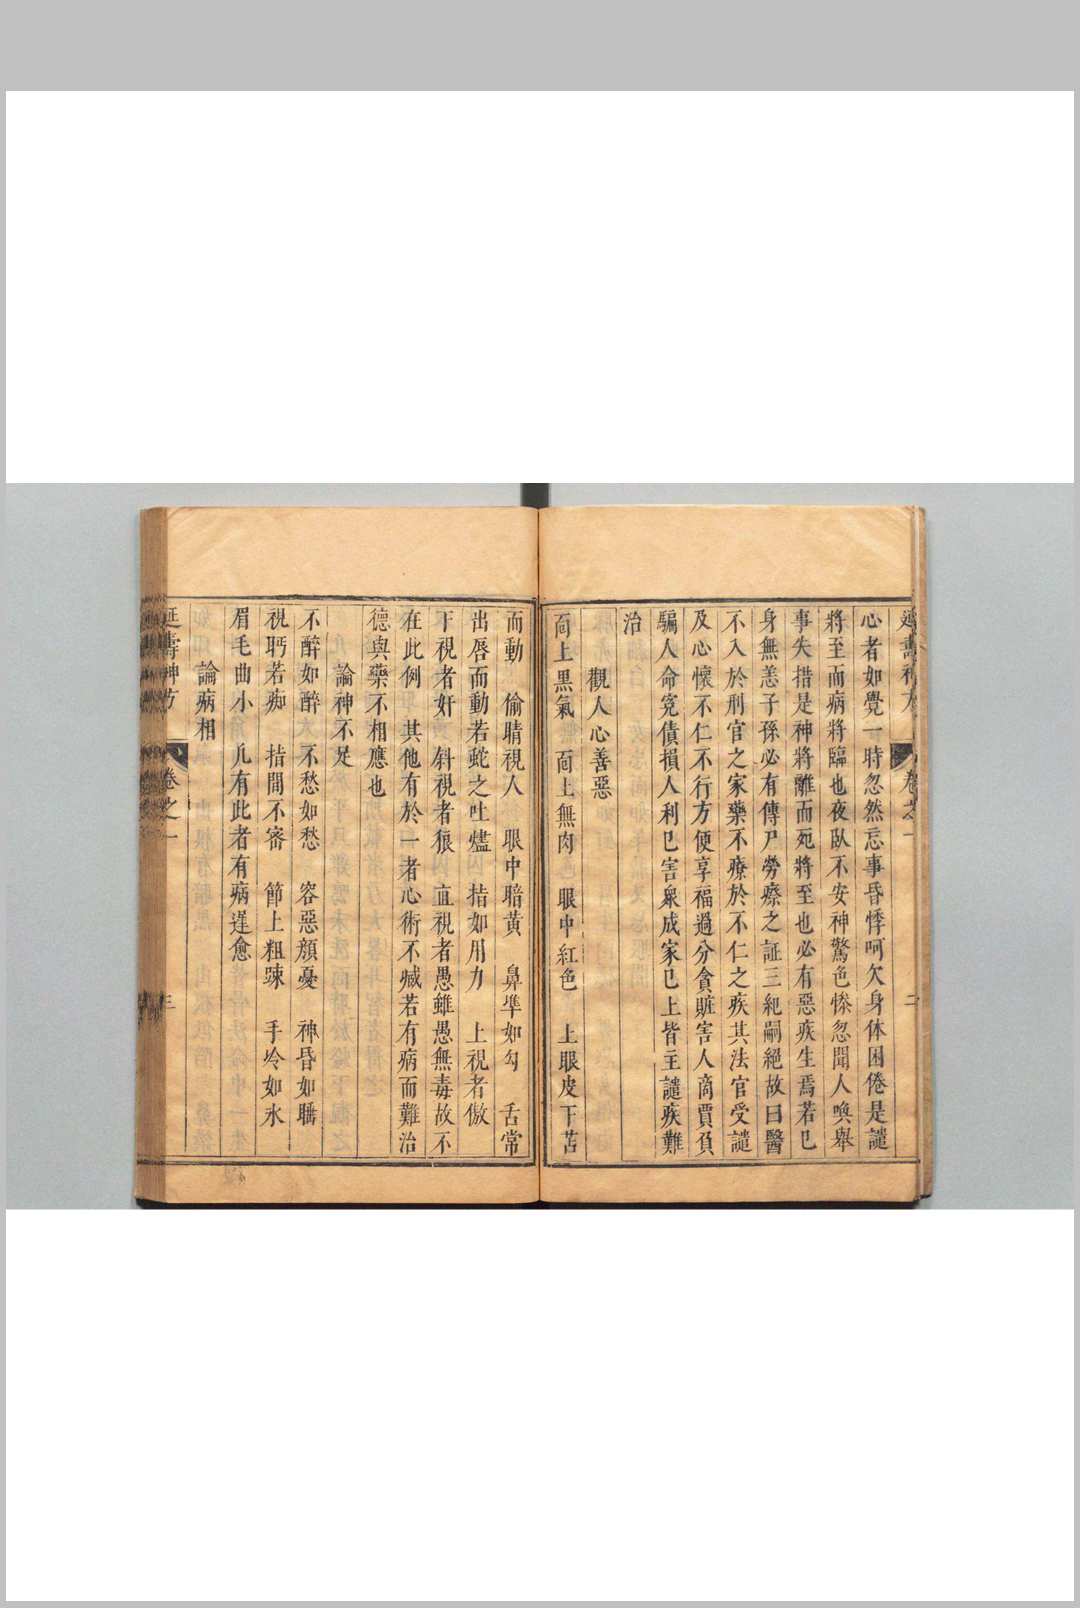 延壽神方 卷之一 二
心者如覺一時忽然忘事昏悸呵欠身体困倦是譴
將至而病將臨也夜臥不安神驚色慘忽聞人喚舉
事失措是神將離而死將至也必有惡疾生焉若已
身無恙子孫必有傳尸勞瘵之証三紀嗣絕故曰醫
不入於刑官之家藥不療於不仁之疾其法官受譴
及心懷不仁不行方便享福過分貪賍害人商賈負
騙人命寃債損人利已害衆成家已上皆主譴疾難
治
觀人心善惡
面上黒氣 面上無肉 眼中紅色 上眼皮下苫
而動 偷睛視人 眼中暗黄 鼻準如勾 舌常
出唇而動若蛇之吐燼 揩如用力 上視者傲
下視者奸 斜視者狼 直視者愚雖愚無毒故不
在此例 其他有於一者心術不臧若有病而難治
德與藥不相應也
論神不足
不醉如醉 不愁如愁 容惡顔憂 神昏如𥅻
視眄若痴 揩間不審 節上粗踈 手冷如氷
眉毛曲小 凢有此者有病遅愈
論病相
延壽神方 卷之一 三